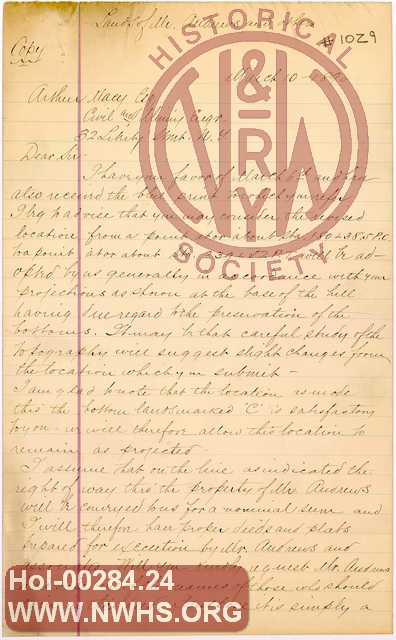 Lands of Mr. Andrews and
#1029
Copy
March 10
Arthur Macy Esq
Civil and Mining Engr.
32 Liberty Street. N.Y.
Dear Sir.
I have your favor of March 6th and
also received the blue print to which you refer
I beg to advise that you may consider the revised
location from a point at or about Sta 150+38.5 P.C.
to a point at or about Sta will be ad-
opted by us generally in accordance with your
projections as shown at the base of the hill
having due regard to the preservation of the
bottoms. It may be that careful study of the
topography will suggest slight changes from
the location which you submit -
I am glad to note that the location as made
thro the bottom lands marked "C" is satisfactory
to you - we will therefore allow this location to
remain as projected.
I assume that on the line as indicated the
right of way thro the property of Mr. Andrews
will be conveyed to us for a nominal sum and
I will therefore have proper deeds and plats
prepared for execution by Mr. Andrews and
Will you kindly request Mr. Andrews
names of those who should
is simply a
HISTORICAL
N&W RY
SOCIETY
Hol-00284.24
WWW.NWHS.ORG